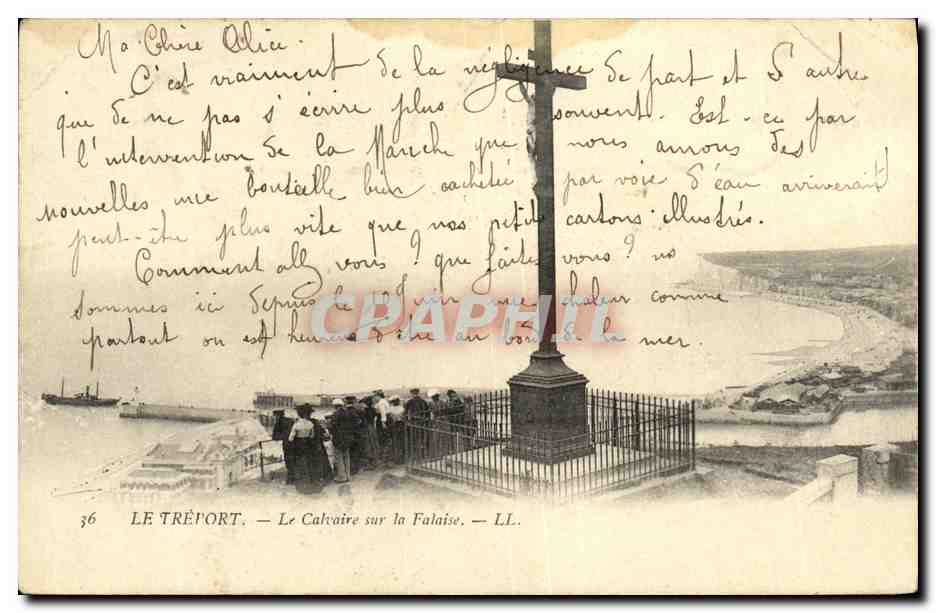 Ma Chère Alice.
C'est vraiment de la négligence de part et d'autre
que de ne pas s'écrire plus souvent. Est-ce par
l'intervention de la Manche que nous aurons des
nouvelles une bouteille bien cachetée par voie d'eau arriverait
peut-être plus vite que nos petits cartons illustrés.
Comment allez vous? que faites vous? ns
sommes ici depuis le Juin une chaleur comme
partout on est heureux d'être au bord de la mer.
CPAPHIL
36 LE TRÉPORT. — Le Calvaire sur la Falaise. — LL.